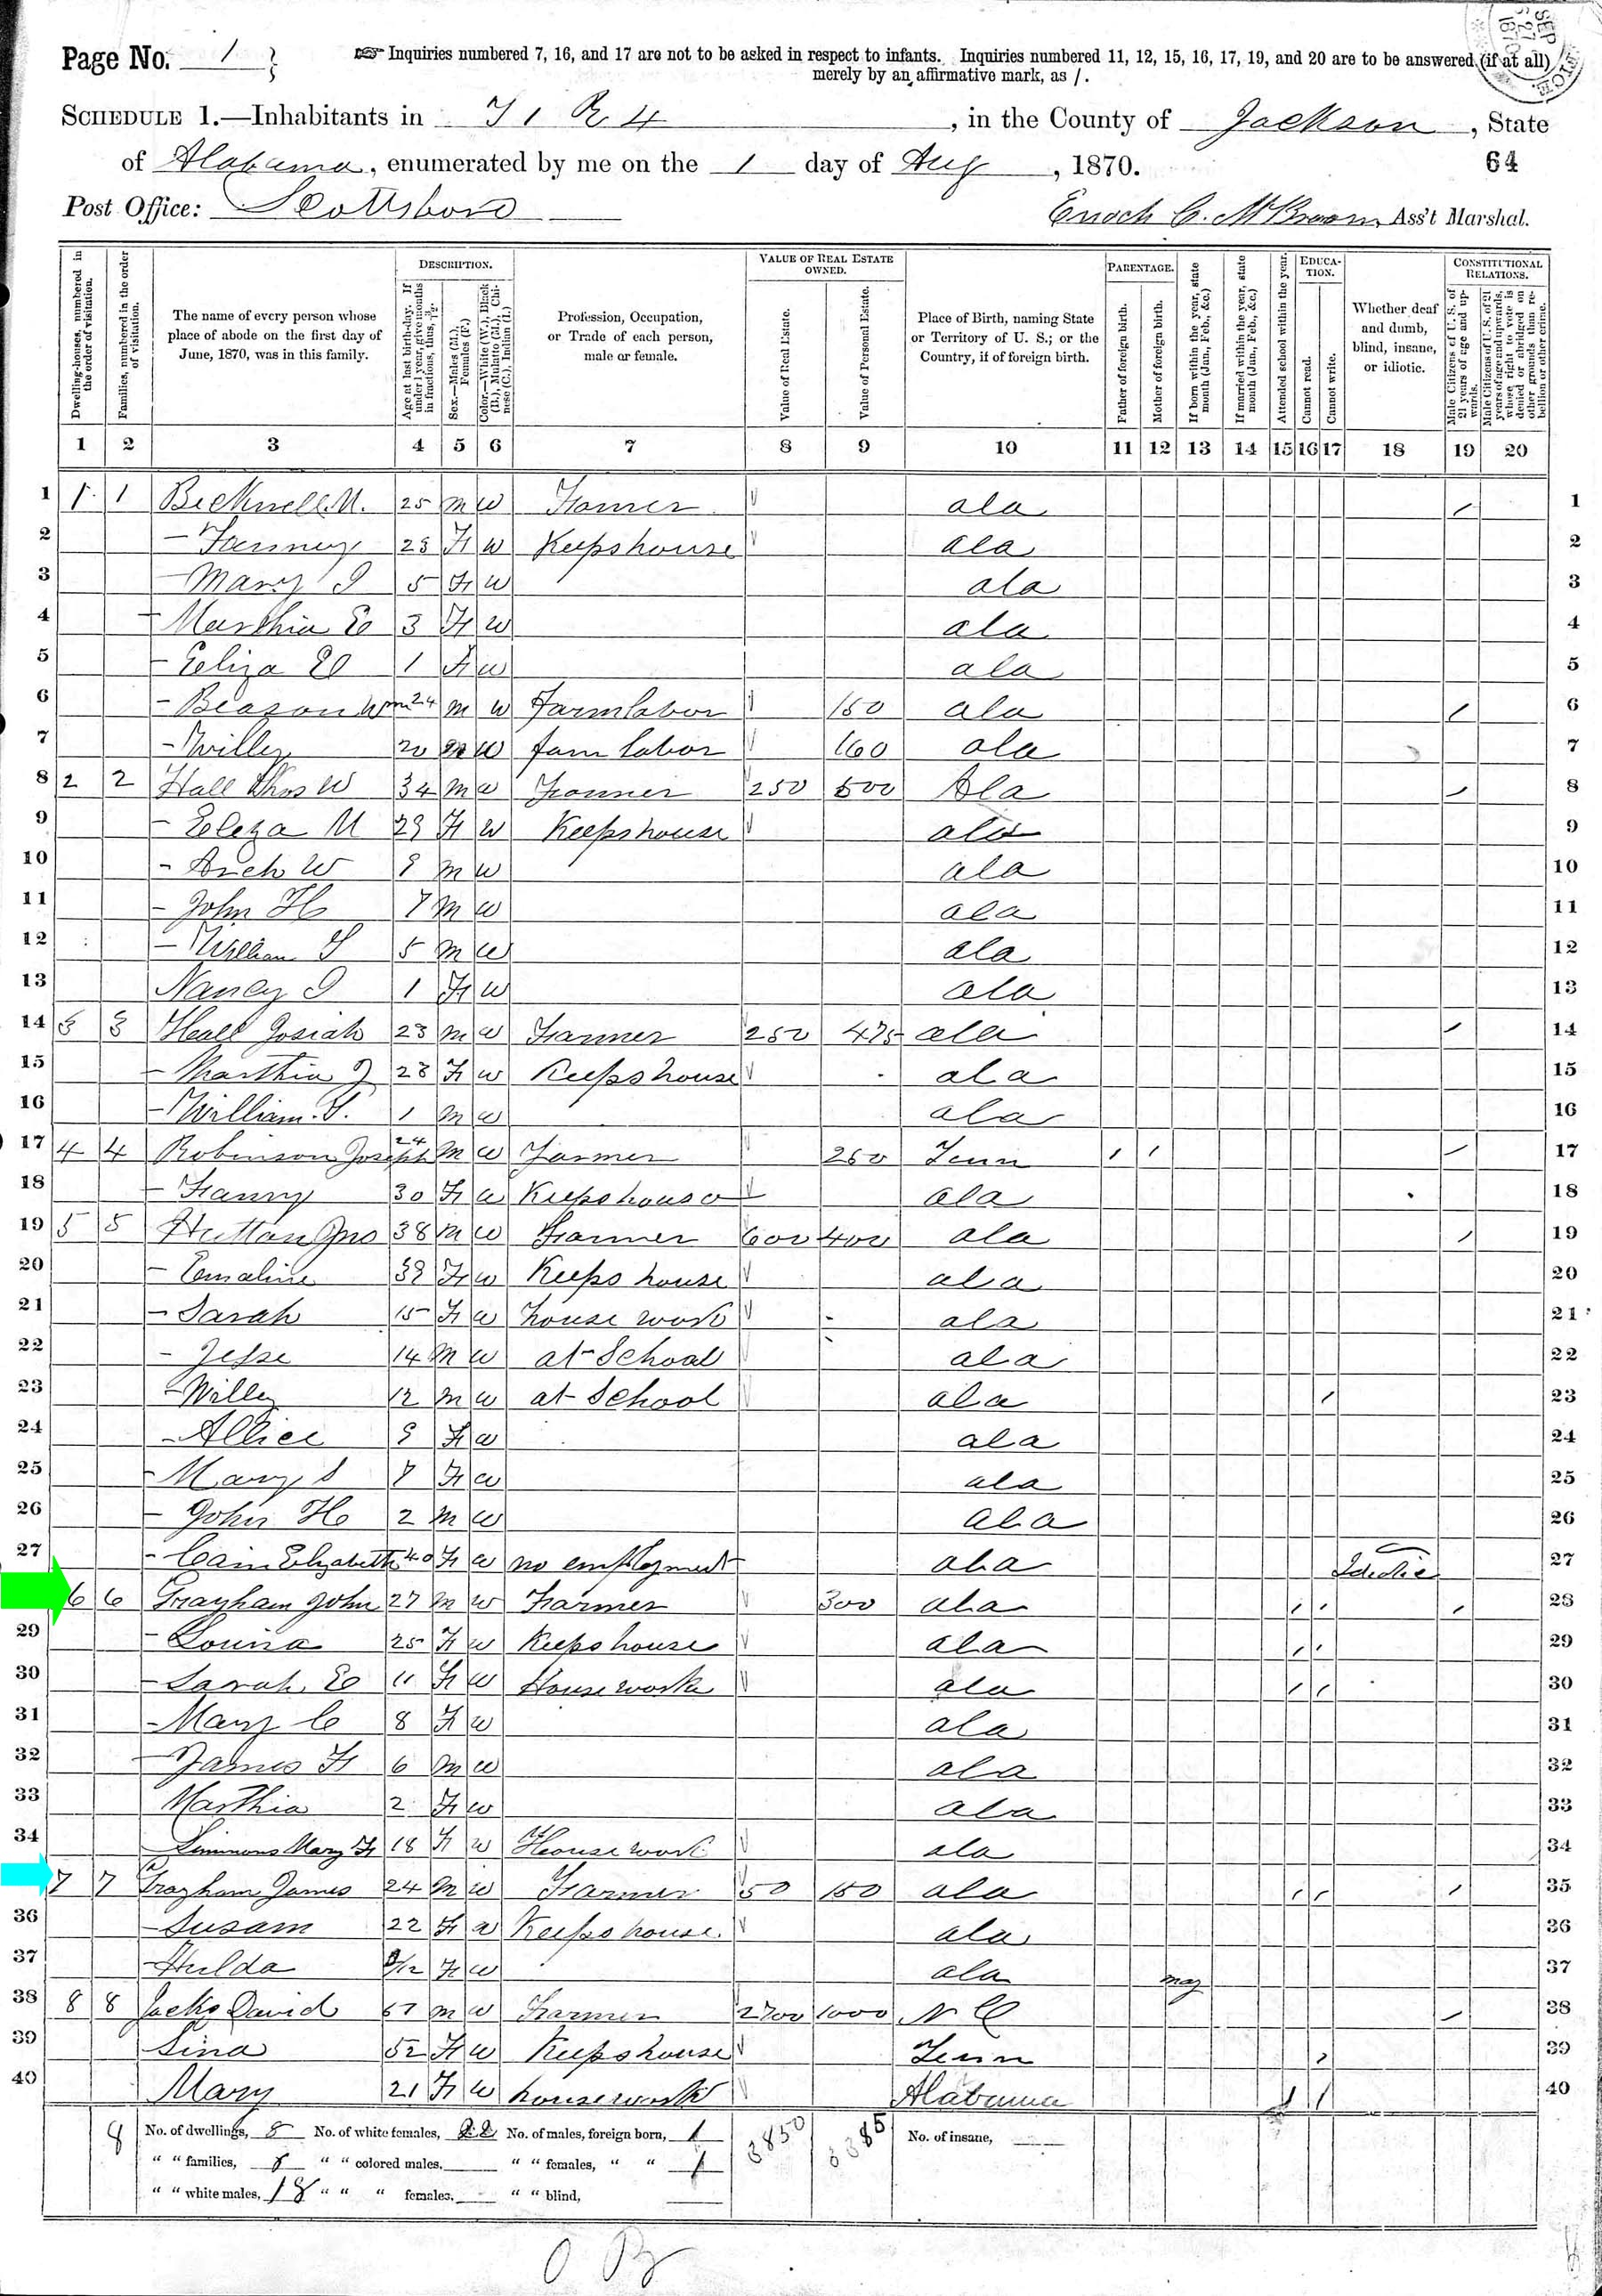 Page No. 1
☞ Inquiries numbered 7, 16, and 17 are not to be asked in respect to infants. Inquiries numbered 11, 12, 15, 16, 17, 19, and 20 are to be answered (if at all)
merely by an affirmative mark, as /.
SCHEDULE 1.—Inhabitants in T 1 R 4, in the County of Jackson, State
of Alabama, enumerated by me on the 1 day of Aug, 1870.
64
Post Office: Scottsboro
Enoch C. McBroom, Ass't Marshal.
Dwelling-houses, numbered in the order of visitation.
Families, numbered in the order of visitation.
The name of every person whose place of abode on the first day of June, 1870, was in this family.
DESCRIPTION.
Age at last birth-day. If under 1 year, give months in fractions, thus, 3/12.
Sex.—Males (M.), Females (F.)
Color.—White (W.), Black (B.), Mulatto (M.), Chinese (C.), Indian (I.)
Profession, Occupation, or Trade of each person, male or female.
VALUE OF REAL ESTATE OWNED.
Value of Real Estate.
Value of Personal Estate.
Place of Birth, naming State or Territory of U. S.; or the Country, if of foreign birth.
PARENTAGE.
Father of foreign birth.
Mother of foreign birth.
If born within the year, state month (Jan., Feb., &c.)
If married within the year, state month (Jan., Feb., &c.)
EDUCATION.
Attended school within the year.
Cannot read.
Cannot write.
Whether deaf and dumb, blind, insane, or idiotic.
CONSTITUTIONAL RELATIONS.
Male Citizens of U. S. of 21 years of age and upwards.
Male Citizens of U. S. of 21 years of age and upwards, whose right to vote is denied or abridged on other grounds than rebellion or other crime.
1 2 3 4 5 6 7 8 9 10 11 12 13 14 15 16 17 18 19 20
1 1 1 Bicknell M. 25 M W Farmer ala / 1
2 — Fanney 23 F W Keeps house ala 2
3 — Mary J 5 F W ala 3
4 — Marthia E 3 F W ala 4
5 — Eeliza E 1 F W ala 5
6 — Beason Wm 24 M W Farm labor 150 ala / 6
7 — Willey 20 M W farm labor 160 ala 7
8 2 2 Hall Thos W 34 M W Farmer 250 500 Ala / 8
9 — Eleza M 29 F W Keeps house ala 9
10 — Arch W 9 M W ala 10
11 — John H 7 M W ala 11
12 — William S 5 M W ala 12
13 Nancy J 1 F W ala 13
14 3 3 Hall Josiah 23 M W Farmer 250 475 ala / 14
15 — Marthia J 28 F W Keeps house ala 15
16 — William. T. 1 M W ala 16
17 4 4 Robinson Joseph 24 M W Farmer 250 Tenn / / / 17
18 — Fanny 30 F W Keeps house ala 18
19 5 5 Hutton Jno 38 M W Farmer 600 400 ala / 19
20 — Emaline 39 F W Keeps house ala 20
21 — Sarah 15 F W house work ala 21
22 — Jesse 14 M W at School ala 22
23 — Willey 12 M W at School ala / 23
24 — Allice 9 F W ala 24
25 — Mary S 7 F W ala 25
26 — John H 2 M W ala 26
27 — Cain Elizabeth 40 F W no employment ala Idiotic 27
28 6 6 Grayham John 27 M W Farmer 300 ala / / / 28
29 — Louisa 25 F W Keeps house ala / / 29
30 — Sarah E 11 F W House work ala / / 30
31 — Mary C 8 F W ala 31
32 — James F 6 M W ala 32
33 Marthia 2 F W ala 33
34 Simmons Mary F 18 F W House work ala 34
35 7 7 Grayham James 24 M W Farmer 50 150 ala / / / 35
36 — Susam 22 F W Keeps house. ala 36
37 — Hulda 2/12 F W ala May 37
38 8 8 Jacks David 67 M W Farmer 2700 1000 N C / 38
39 Sina 52 F W Keeps house Tenn / 39
40 Mary 21 F W house work Alabama / / 40
8 No. of dwellings, 8 No. of white females, 22 No. of males, foreign born, 3850 3385 No. of insane,
" " families, 8 " " colored males, " " females, " "
" " white males, 18 " " " females, " " blind,